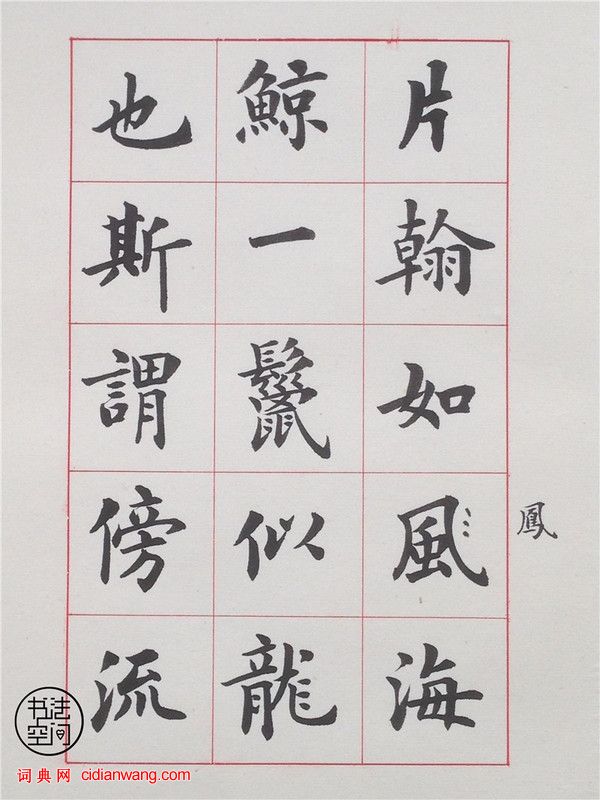 片翰如風海
鳳
鯨一鬣似龍
也斯謂傍流
书法空间
词典网 cidianwang.com